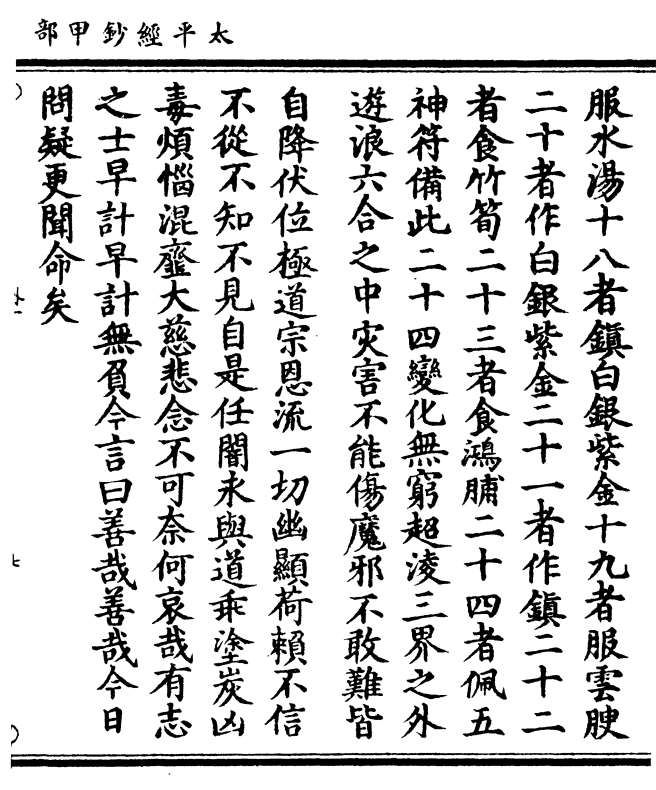 太平經鈔甲部
服水湯十八者鎮白銀紫金十九者服雲腴
二十者作白銀紫金二十一者作鎮二十二
者食竹筍二十三者食鴻脯二十四者佩五
神符備此二十四變化無窮超淩三界之外
遊浪六合之中灾害不能傷魔邪不敢難皆
自降伏位極道宗恩流一切幽顯荷賴不信
不從不知不見自是任闇永與道乖塗炭凶
毒煩惱混齏大慈悲念不可奈何哀哉有志
之士早計早計無負今言曰善哉善哉今日
問疑更聞命矣